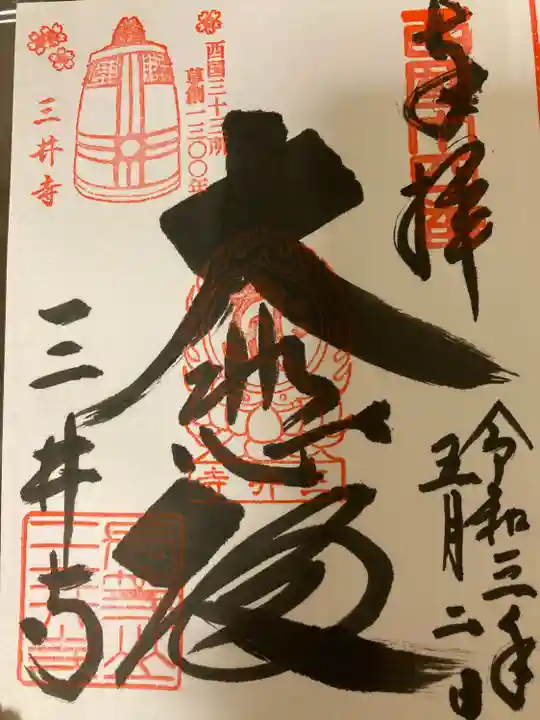 奉拝
令和三年
五月二日
大悲殿
三井寺
西国三十三所
草創一三〇〇年
三井寺
三井寺